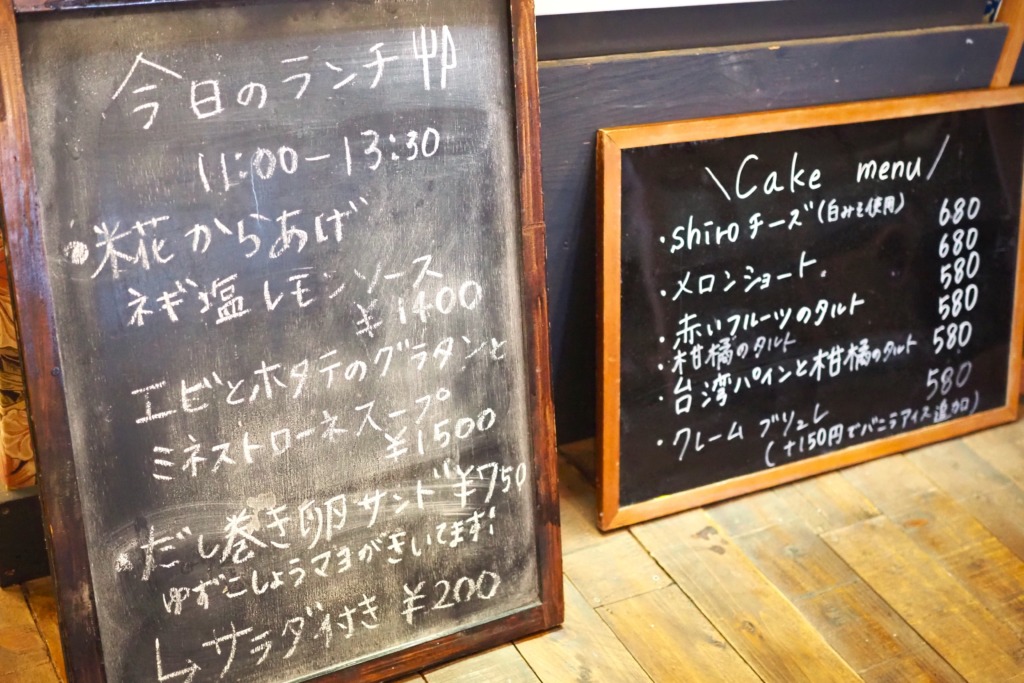 今日のランチ
11:00-13:30
・米花からあげ
ネギ塩レモンソース
¥1400
エビとホタテのグラタンと
ミネストローネスープ
¥1500
・だし巻き卵サンド ¥750
ゆずこしょうマヨがきいてます!
↳サラダ付き ¥200
\Cake menu/
・shiroチーズ(白みそ使用) 680
・メロンショート。 680
・赤いフルーツのタルト 580
・柑橘のタルト 580
・台湾パインと柑橘のタルト 580
・クレームブリュレ 580
(+150円でバニラアイス追加)